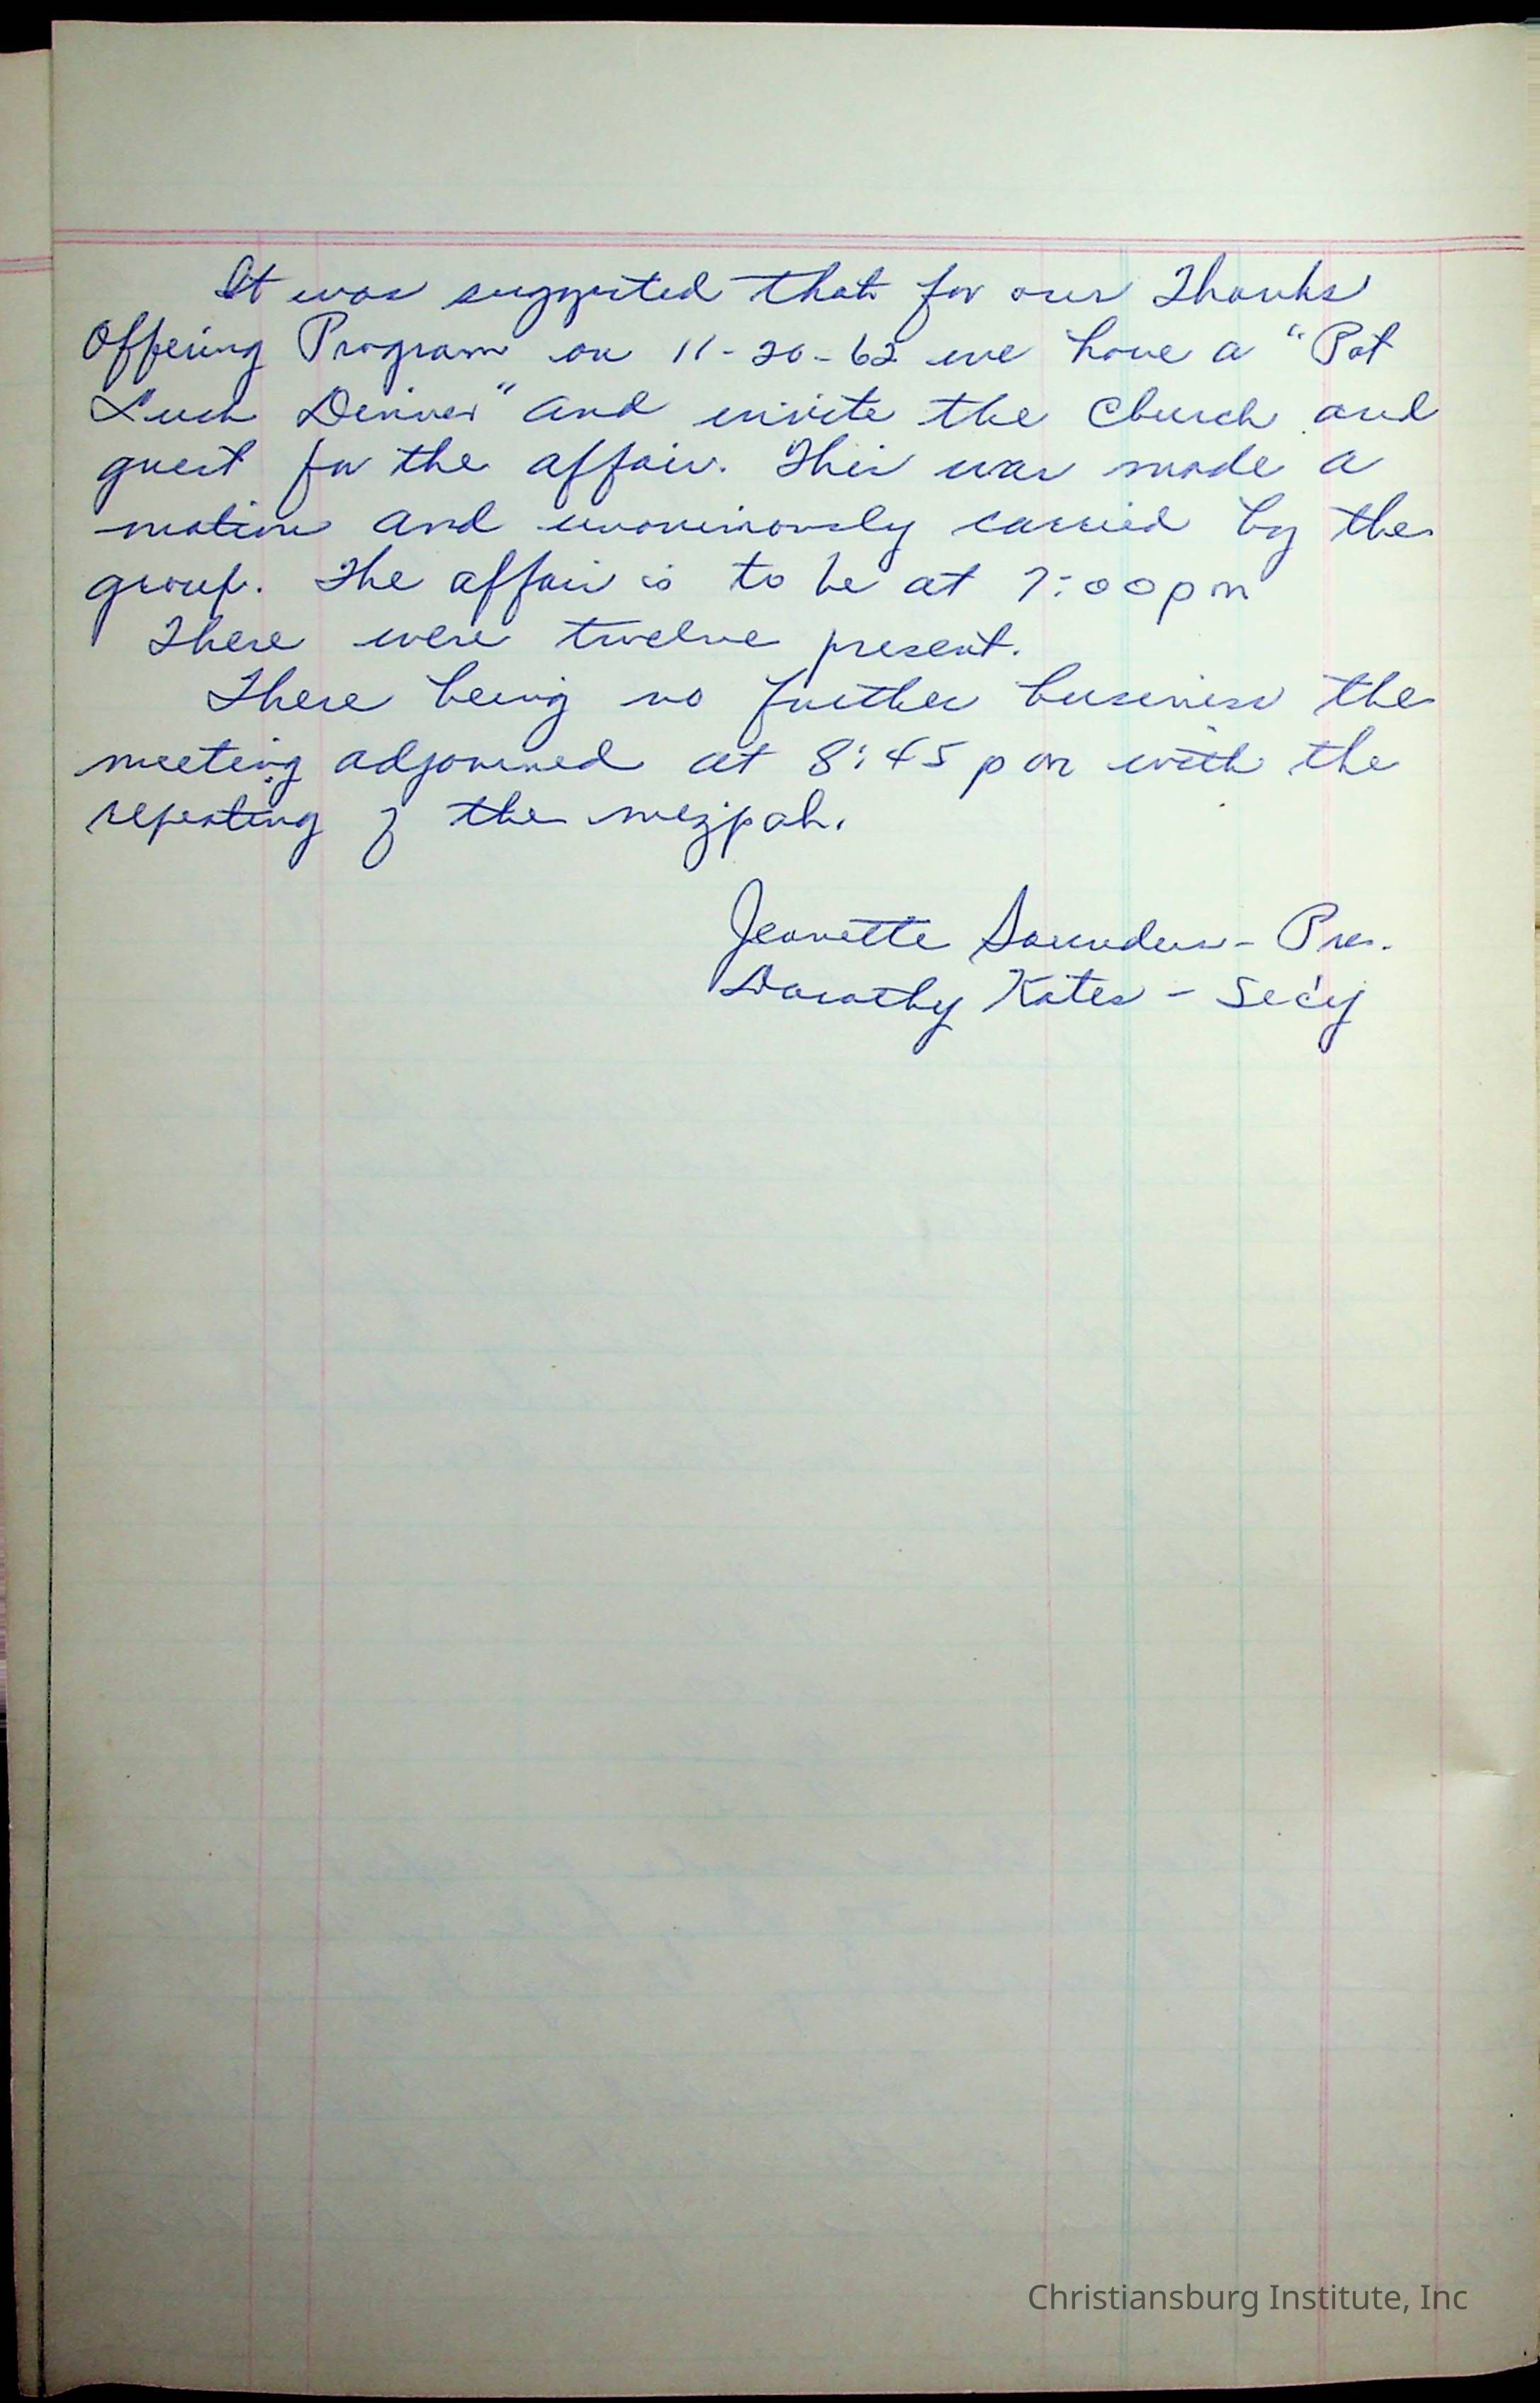 It was suggested that for our Thanks
Offering Program on 11-20-62 we have a "Pot
Luck Dinner" and invite the Church and
guest for the affair. This was made a
motion and unanimously carried by the
group. The affair is to be at 7:00 pm
There were twelve present.
There being no further business the
meeting adjourned at 8:45 pm with the
repeating of the mezpah.
Jeanette Saunders - Pres.
Dorothy Kates - Sec'y
Christiansburg Institute, Inc